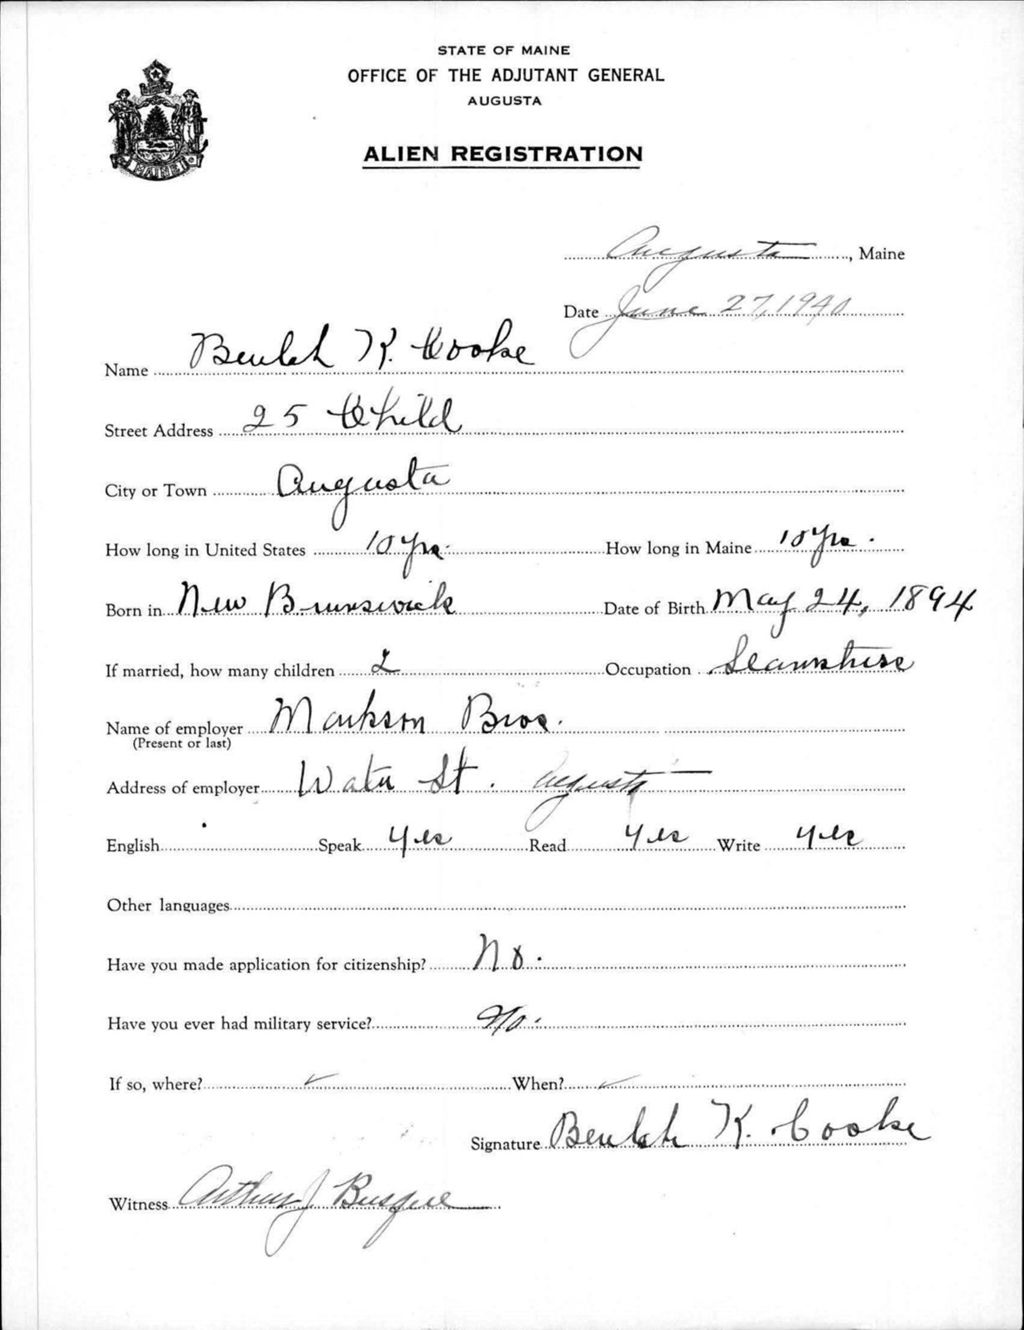 STATE OF MAINE
OFFICE OF THE ADJUTANT GENERAL
AUGUSTA
ALIEN REGISTRATION
MAINE
Augusta, Maine
Date June 27, 1940
Name Beulah K. Cooke
Street Address 25 Child
City or Town Augusta
How long in United States 10 yrs. How long in Maine 10 yrs.
Born in New Brunswick Date of Birth May 24, 1894
If married, how many children 2 Occupation Seamstress
Name of employer Markson Bros.
(Present or last)
Address of employer Water St. Augusta
English Speak yes Read yes Write yes
Other languages
Have you made application for citizenship? No.
Have you ever had military service? No.
If so, where? When?
Signature Beulah K. Cooke
Witness Arthur J